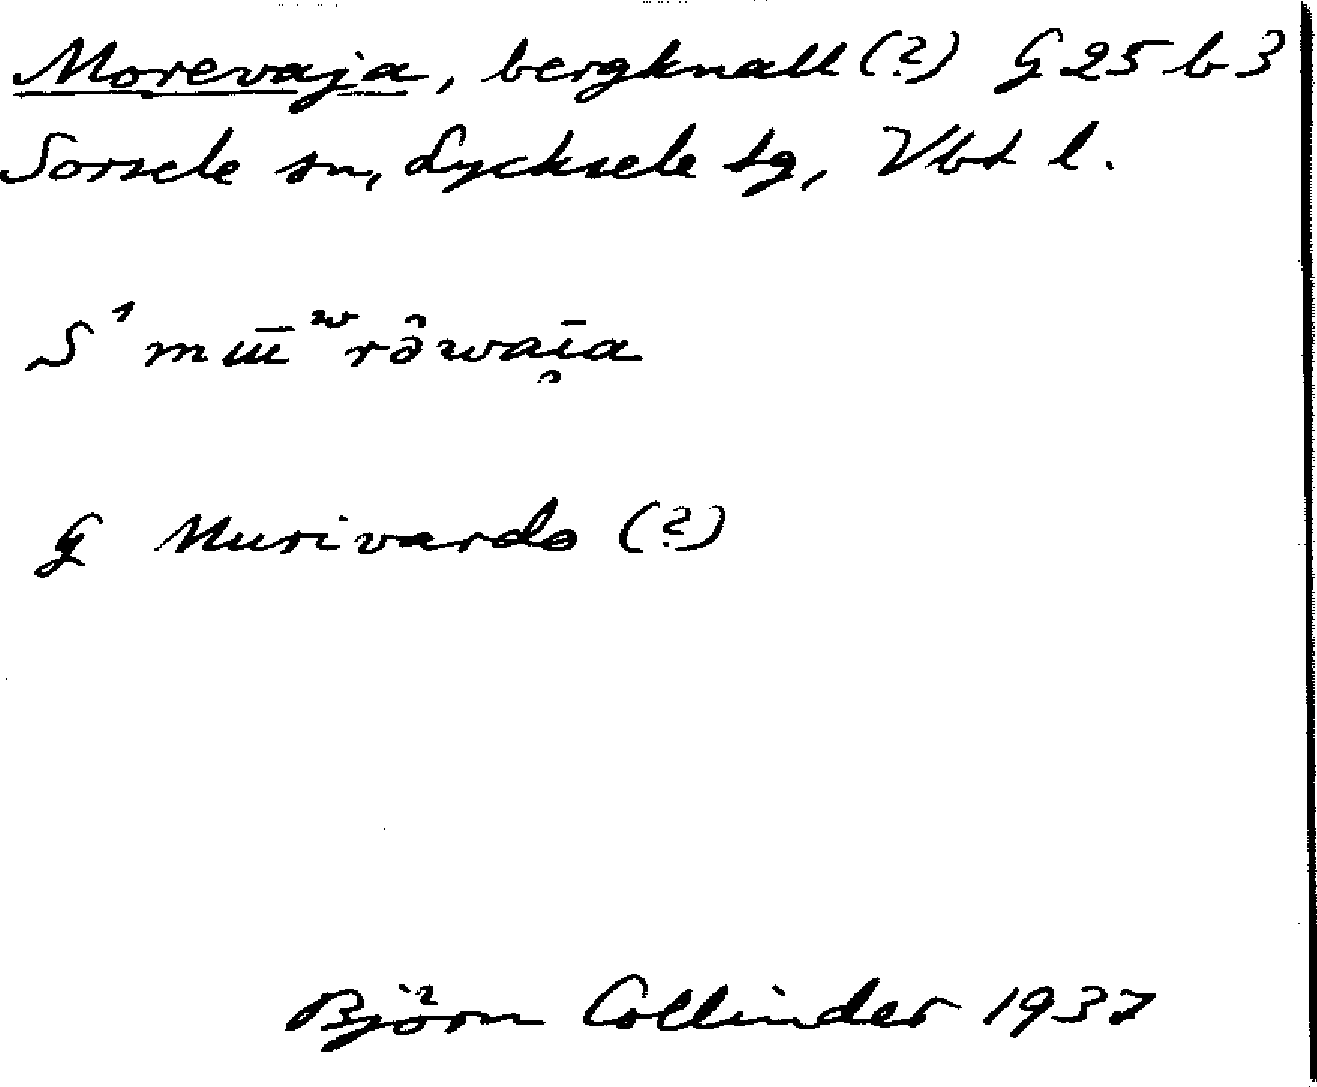 Morevaja, bergknall (?) G 25 b 3
Sorsele sn, Lycksele tg, Vbt l.
G Murivardo (?)
Björn Collinder 1937